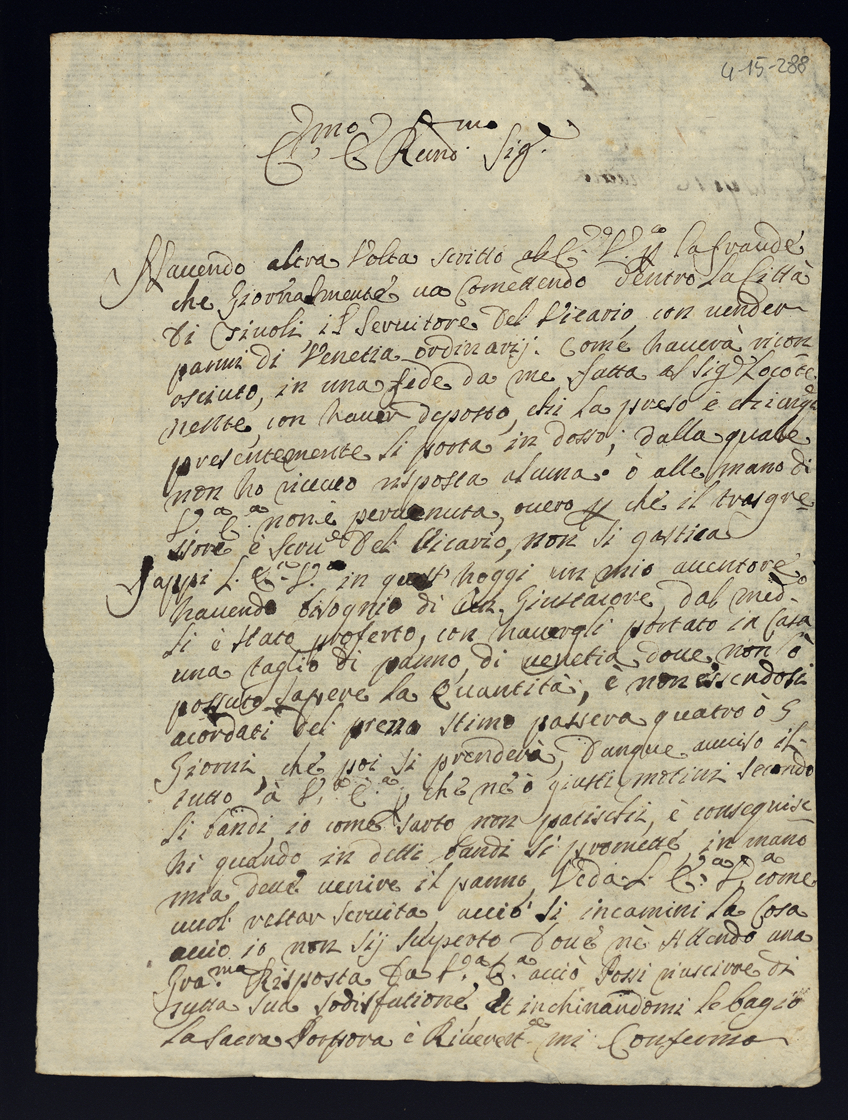 4-15-288
E.mo E Reu.mo Sig.r
Hauendo altra Volta scritto all'E. V. la fraude
che Giornalmente ua Comettendo dentro la Città
Di Tiuoli il Seruitore Del Vicario con uender
panni di Venetia ordinarij. Come hauerà ricon
osciuto, in una fede da me fatta al Sig.r Locote
nente con hauer deposto, chi la preso è chi
presentemente si porta in dosso; dalla quale
non ho riceuto risposta alcuna ò alle mano di
V.a E.a non è peruenuta, ouero p che il trasgre
ssore è Seru.e Del Vicario, non si gastica
Sappi L. E. V. in quest'hoggi un mio auentore
hauendo bisognio di un Giustacore, dal med.o
li è stato proferto, con hauergli portato in Casa
una taglio di panno, di uenetia doue non ò
possuto sapere la Quantità, è non essendosi
acordati del prezzo stimo passera quatro ò 5
Giorni, che poi si prenderà, Dunque auuiso il
tutto à V.a E.a, che ne ò giusti motiui secondo
li bandi io come sarto non patischi, è conseguisc
hi quando in detti bandi si promette, in mano
mia deue uenire il panno, Veda L. E.a V.a come
uuol restar seruita acciò si incamini la Cosa
acciò io non sij scuperto Doue nè Attendo una
Gra.ma Risposta Da V.a E.a acciò Possi riuscire di
tutta sua sodisfatione, et inchinandomi le bagio
La Sacra Porpora è Riuerent.e mi Confermo